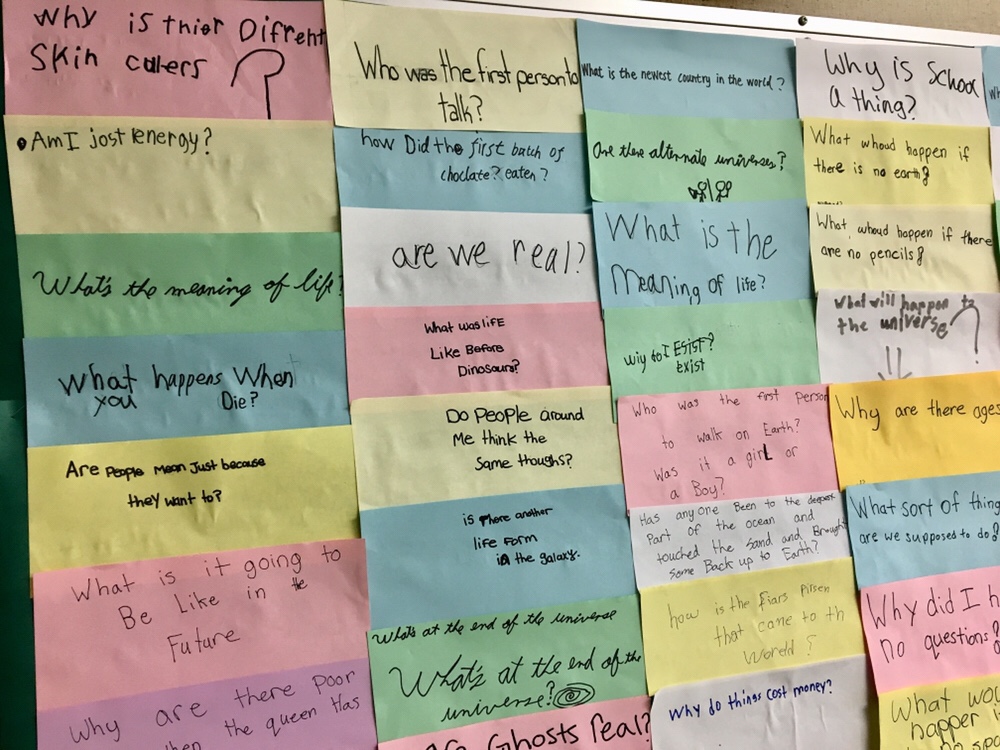 Why is thier Difrent
Skin calers ?
• Am I jost energy?
What's the meaning of life?
What happens When
you Die?
Are People Mean Just because
they want to?
What is it going to
Be Like in the
Future
Why are there poor
when the queen Has
Who was the first person to
talk?
how Did the first batch of
choclate? eaten?
are we real?
What was liFE
Like Before
Dinosaurs?
Do People around
Me think the
Same thoughs?
is there another
life Form
in the galaxy.
What's at the end of the universe
What's at the end of the
universe?
Ghosts real?
What is the newest country in the world?
Are there alternate universes?
What is the
Meaning of life?
wiy to I Esist?
exist
Who was the first Person
to walk on Earth?
Was it a girL or
a Boy?
Has anyone Been to the deepest
Part of the ocean and
touched the Sand and Brought
Some Back up to Earth?
how is the fiars Pirsen
that came to th
Woreld?
Why do things cost money?
Why is School
a thing?
What whoud happen if
there is no earth?
What whoud happen if there
are no pencils?
What will happen to
the universe ?
Why are there ages
What sort of thing
are we supposed to do?
Why did I h
no questions?
What wou
happen i